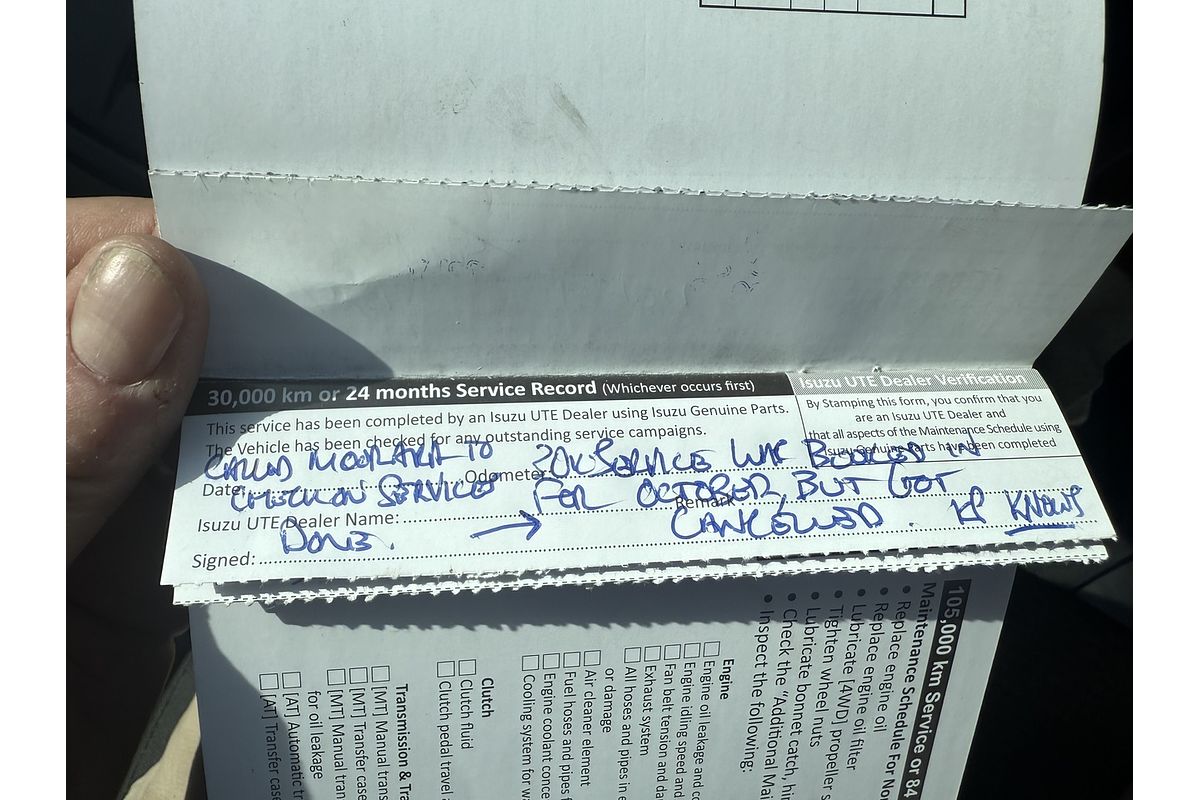 30,000 km or 24 months Service Record (Whichever occurs first)
This service has been completed by an Isuzu UTE Dealer using Isuzu Genuine Parts.
The Vehicle has been checked for any outstanding service campaigns.
Isuzu UTE Dealer Verification
By Stamping this form, you confirm that you
are an Isuzu UTE Dealer and
that all aspects of the Maintenance Schedule using
Isuzu Genuine Parts have been completed
Date: Odometer
Isuzu UTE Dealer Name: Remark
Signed:
CALLED TO
CHECK ON SERVICES
DONE. →
30K SERVICE WAS BOOKED IN
FOR OCTOBER, BUT GOT
CANCELLED. KNOWS
105,000 km Service or 84
Maintenance Schedule For
• Replace engine oil
• Replace engine oil filter
• Lubricate [4WD] propeller
• Tighten wheel nuts
• Lubricate bonnet catch,
• Check the "Additional
• Inspect the following:
Engine
Engine oil leakage and
Engine idling speed and
Fan belt tension and
Exhaust system
All hoses and pipes in
or damage
Air cleaner element
Fuel hoses and pipes
Engine coolant
Cooling system for
Clutch
Clutch fluid
Clutch pedal travel
Transmission &
[MT] Manual
[MT] Transfer
[MT] Manual
for oil leakage
[AT] Automatic
[AT] Transfer case